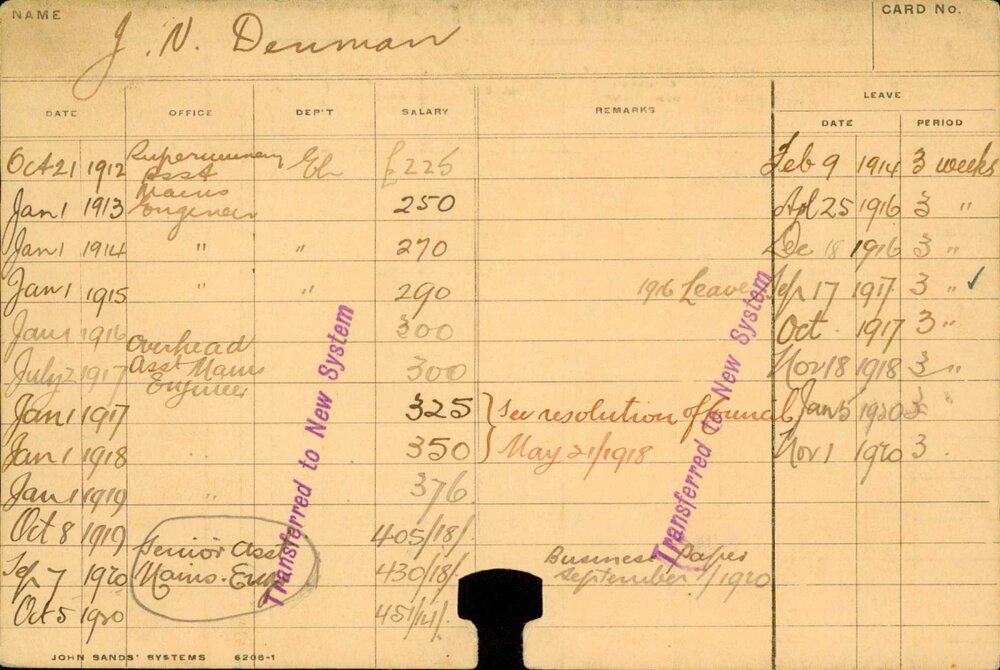 NAME J. N. Denman CARD No.
LEAVE
DATE OFFICE DEP'T SALARY REMARKS DATE PERIOD
Oct 21 1912 Supernumerary El £225 Feb 9 1914 3 weeks
Asst
Jan 1 1913 Mains 250 Apl 25 1916 3 "
Engineer
Jan 1 1914 " " 270 Dec 18 1916 3 "
Jan 1 1915 " " 290 1916 Leave Sep 17 1917 3 " ✓
Jan 1 1916 300 Oct. 1917 3 "
Overhead
July 2 1917 Asst Mains 300 Nov 18 1918 3 "
Engineer
Jan 1 1917 325 } See resolution of Council Jan 5 1920 3
Jan 1 1918 350 } May 21/1918 Nov 1 1920 3
Jan 1 1919 " 376
Oct 8 1919 405/18/-
Senior Asst
Sep 7 1920 Mains. Eng 430/18/- Business Paper
September 1920
Oct 5 1920 451/14/-
Transferred to New System
Transferred to New System
JOHN SANDS' SYSTEMS 6206-1